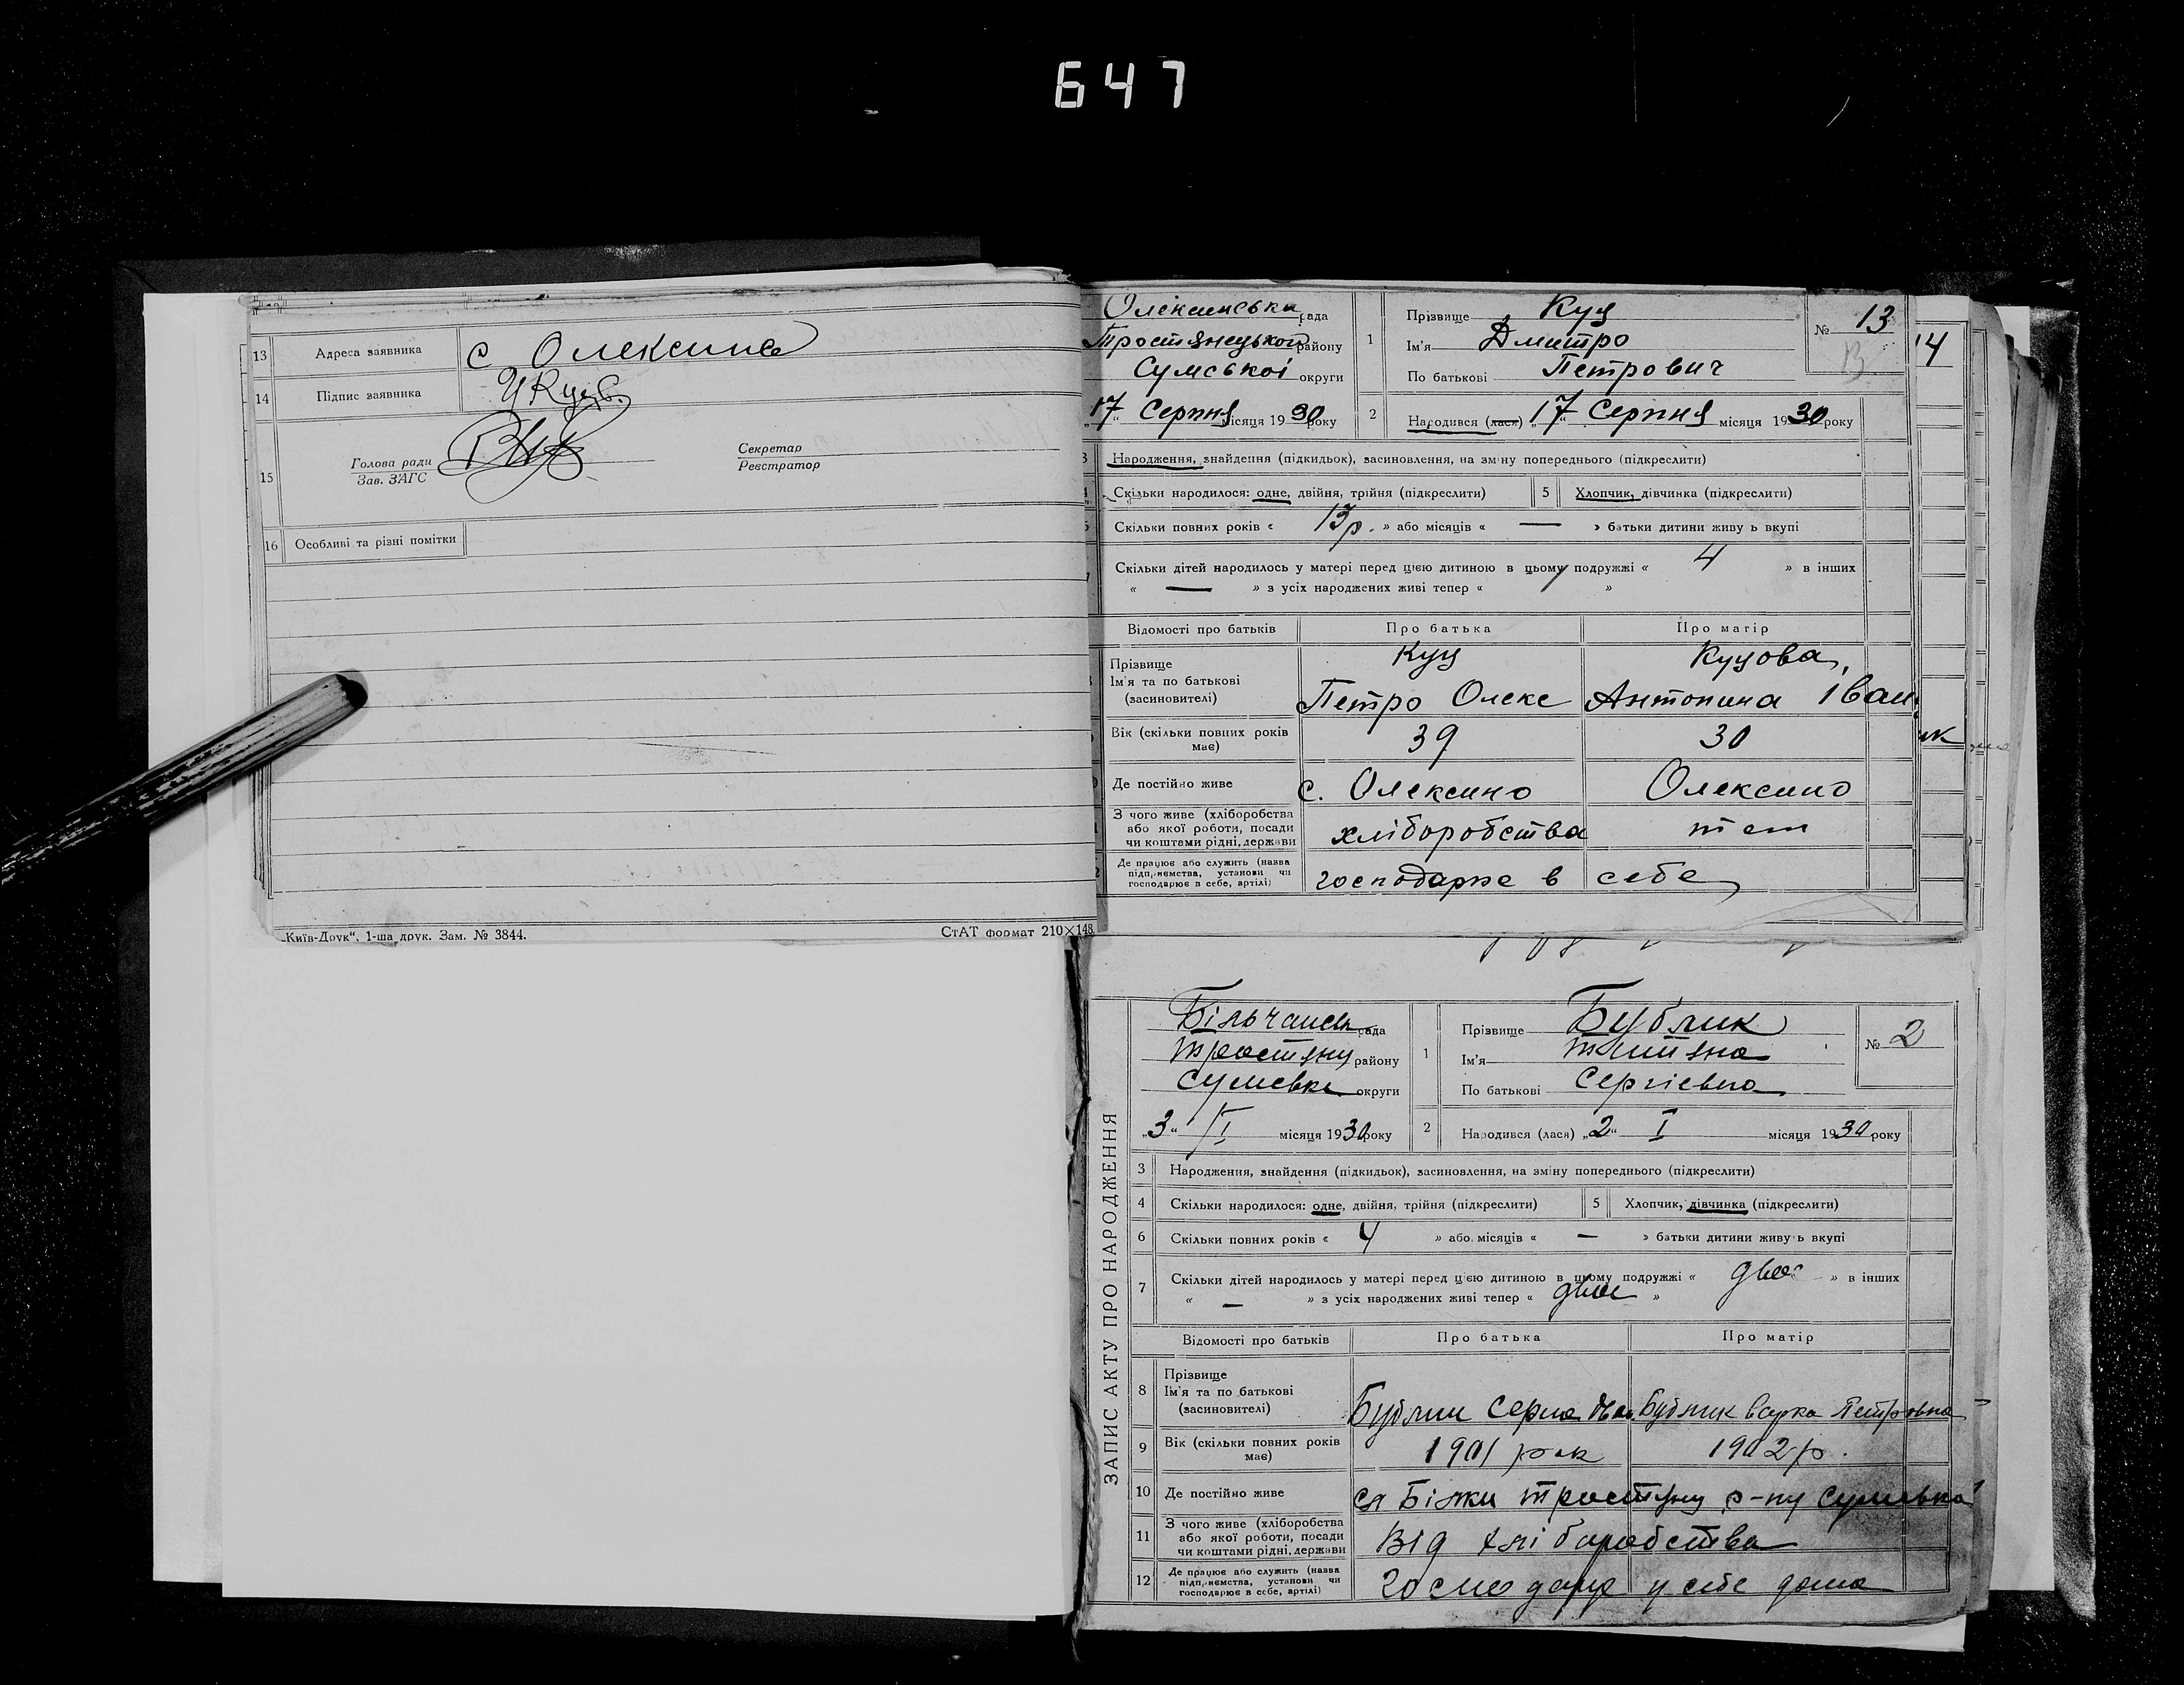 647
13 Адреса заявника с Олексине
14 Підпис заявника
15 Голова ради Секретар
Зав. ЗАГС Реєстратор
16 Особливі та різні помітки
„Київ-Друк“, 1-ша друк. Зам. № 3844. СтАТ формат 210×148.
Олексинська рада
Тростянецького району
Сумської округи
„17“ Серпня місяця 1930 року
1 Прізвище Куц
Ім'я Дмитро
По батькові Петрович
№ 13
13
14
2 Народився (лася) „17“ Серпня місяця 1930 року
3 Народження, знайдення (підкидьок), засиновлення, на зміну попереднього (підкреслити)
Скільки народилося: одне, двійня, трійня (підкреслити) 5 Хлопчик, дівчинка (підкреслити)
Скільки повних років « 13 р. » або місяців « — » батьки дитини живуть вкупі
Скільки дітей народилось у матері перед цією дитиною в цьому подружжі « 4 » в інших
« — » з усіх народжених живі тепер « »
Відомості про батьків Про батька Про матір
Прізвище Куц Куцова,
Ім'я та по батькові
(засновителі) Петро Олекс Антонина Іван
Вік (скільки повних років має) 39 30
Де постійно живе с. Олексино Олексино
З чого живе (хліборобства
або якої роботи, посади
чи коштами рідні, держави хліборобства теж
Де працює або служить (назва
підприємства, установи чи
господарює в себе, артілі) господарює в себе
ЗАПИС АКТУ ПРО НАРОДЖЕННЯ
Більчанськ рада
Тростянц району
Сумськ округи
„3“ I місяця 1930 року
1 Прізвище Бублик
Ім'я Титяна
По батькові Сергіевна
№ 2
2 Народився (лася) „2“ I місяця 1930 року
3 Народження, знайдення (підкидьок), засиновлення, на зміну попереднього (підкреслити)
4 Скільки народилося: одне, двійня, трійня (підкреслити) 5 Хлопчик, дівчинка (підкреслити)
6 Скільки повних років « 4 » або місяців « — » батьки дитини живуть вкупі
7 Скільки дітей народилось у матері перед цією дитиною в цьому подружжі « двое » в інших
« — » з усіх народжених живі тепер « двое »
Відомості про батьків Про батька Про матір
8 Прізвище
Ім'я та по батькові
(засиновителі) Бублик Бублик Варка Петровна
9 Вік (скільки повних років має) 1901 рок 1902 р.
10 Де постійно живе сл Білки Тростянц р-ну Сумська
11 З чого живе (хліборобства
або якої роботи, посади
чи коштами рідні, держави Від хліборобства
12 Де працює або служить (назва
підприємства, установи чи
господарює в себе, артілі) у себе дома